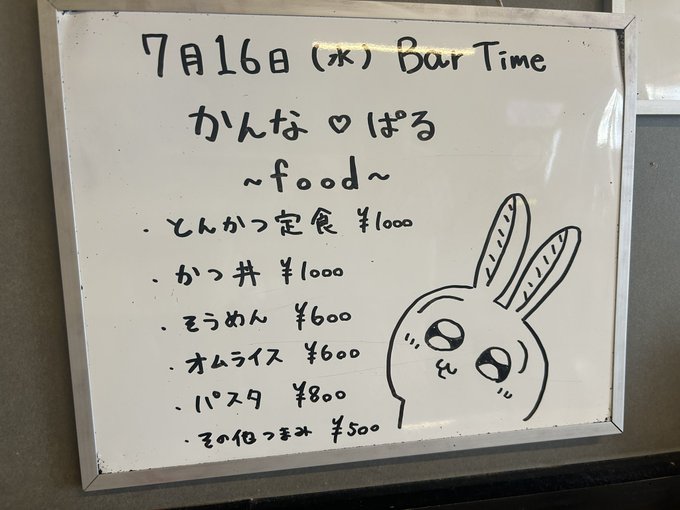 7月16日(水) Bar Time
かんな♡ぱる
~food~
・とんかつ定食 ¥1000
・かつ丼 ¥1000
・そうめん ¥600
・オムライス ¥600
・パスタ ¥800
・その他つまみ ¥500